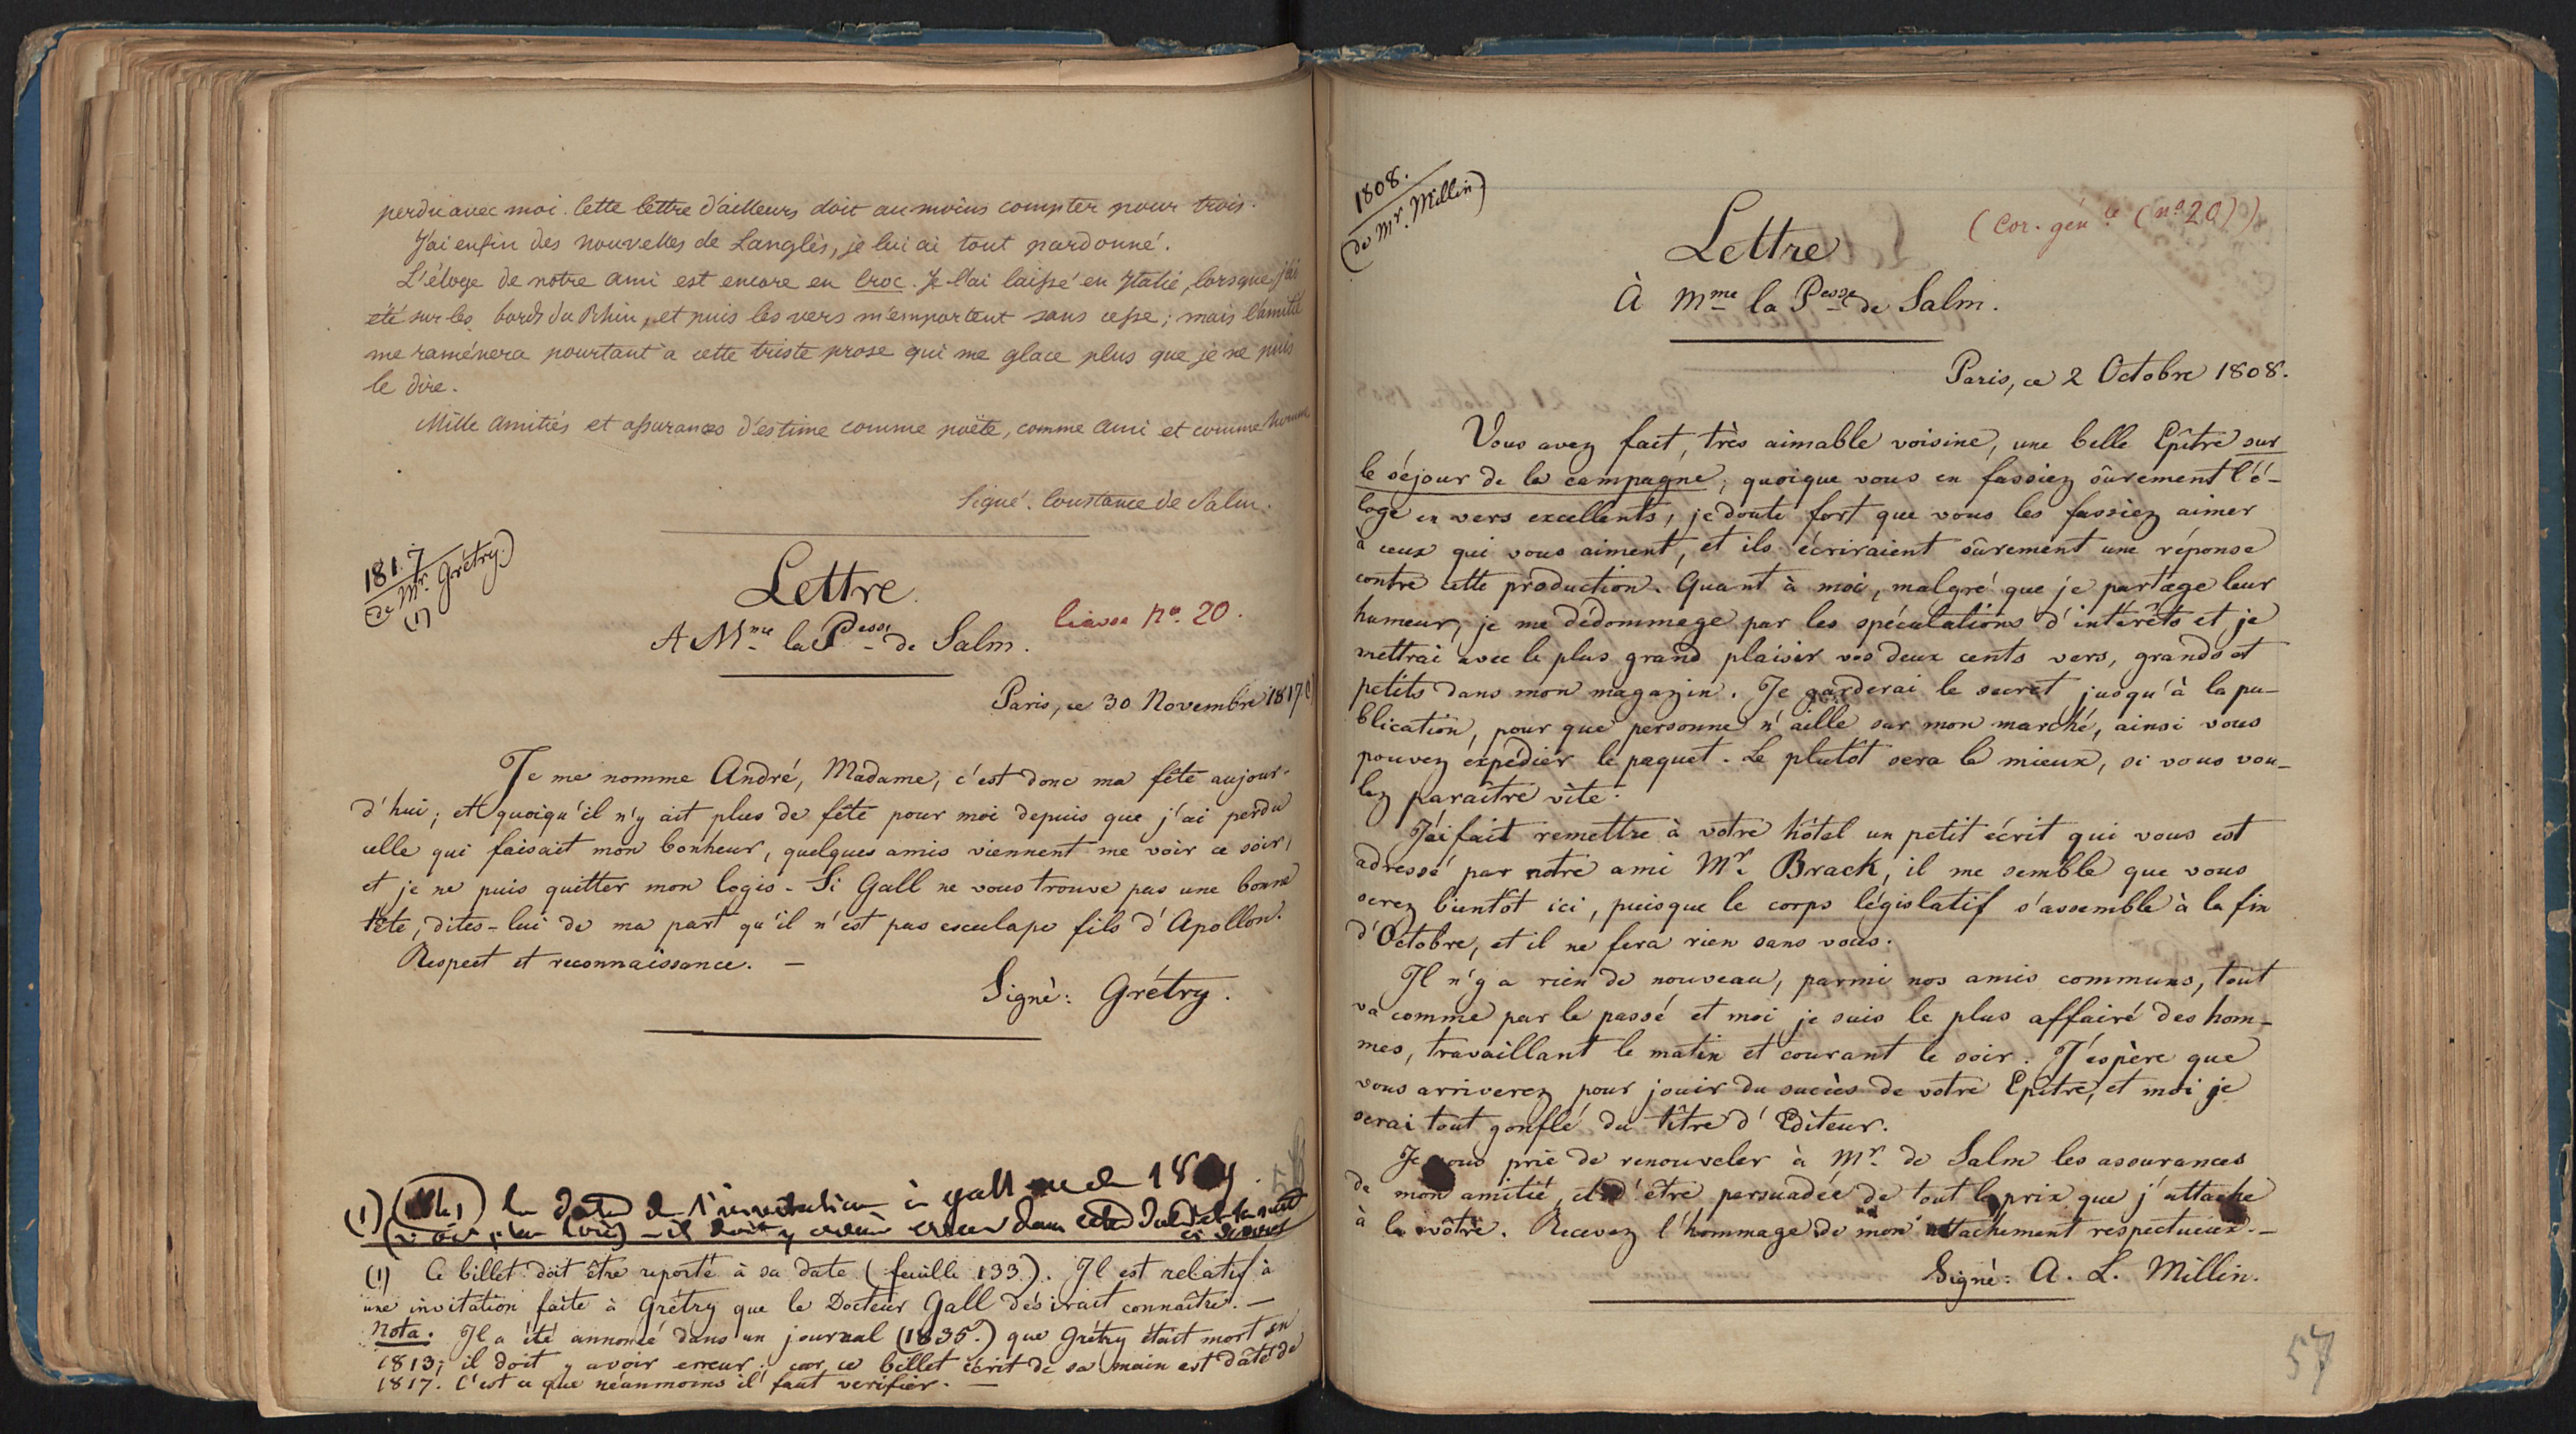 perdu avec moi. Cette lettre d'ailleurs doit au moins compter pour trois.
J'ai enfin des nouvelles de Langlès, je lui ai tout pardonné.
L'éloge de notre ami est encore en croc. Je l'ai laissé en Italie, lorsque j'ai
été sur les bords du Rhin, et puis les vers m'emportent sans cesse ; mais l'amitié
me raménera pourtant à cette triste prose qui me glace plus que je ne puis
le dire.
Mille amitiés et assurances d'estime comme poëte, comme ami et comme homme
Signé. Constance de Salm.
1817
(de Mr. Grétry.)
(1)
Lettre
liasse no. 20.
A Mme la Pesse de Salm.
Paris, ce 30 Novembre 1817 (1)
Je me nomme André, Madame, c'est donc ma fête aujour-
d'hui ; et quoiqu'il n'y ait plus de fête pour moi depuis que j'ai perdu
celle qui faisait mon bonheur, quelques amis viennent me voir ce soir,
et je ne puis quitter mon logis. Si Gall ne vous trouve pas une bonne
tête, dites-lui de ma part qu'il n'est pas esculape fils d'Apollon.
Respect et reconnaissance. —
Signé : Grétry.
(1) la date de l'invitation à gall 18
il doit y avoir erreur dans cette
(1) Ce billet doit être reporté à sa date (feuille 133). Il est relatif à
une invitation faite à Grétry que le Docteur Gall désirait connaître. —
Nota. Il a été annoncé dans un journal (1835.) que Grétry était mort en
1813; il doit y avoir erreur ; car ce billet écrit de sa main est daté de
1817. C'est ce que néanmoins il faut verifier. —
1808.
(de Mr. Millin)
(Cor. génle (no 20))
Lettre
À Mme la Pesse de Salm.
Paris, ce 2 Octobre 1808.
Vous avez fait, très aimable voisine, une belle Epître sur
le séjour de la campagne ; quoique vous en fassiez sûrement l'é-
loge en vers excellents, je doute fort que vous les fassiez aimer
à ceux qui vous aiment, et ils écriraient sûrement une réponse
contre cette production. Quant à moi, malgré que je partage leur
humeur, je me dédommage par les spéculations d'intérêts et je
mettrai avec le plus grand plaisir vos deux cents vers, grands et
petits dans mon magazin. Je garderai le secret jusqu'à la pu-
blication, pour que personne n'aille sur mon marché, ainsi vous
pouvez expédier le paquet. Le plutôt sera le mieux, si vous vou-
lez paraître vite.
J'ai fait remettre à votre hôtel un petit écrit qui vous est
adressé par notre ami Mr. Brack, il me semble que vous
serez bientôt ici, puisque le corps législatif s'assemble à la fin
d'Octobre, et il ne fera rien sans vous.
Il n'y a rien de nouveau, parmi nos amis communs, tout
va comme par le passé et moi je suis le plus affairé des hom-
mes, travaillant le matin et courant le soir. J'espère que
vous arriverez pour jouir du succès de votre Epître, et moi je
serai tout gonflé du tître d'Editeur.
Je vous prie de renouveler à Mr. de Salm les assurances
de mon amitié, et d'être persuadée de tout le prix que j'attache
à la vôtre. Recevez l'hommage de mon attachement respectueux. —
Signé : A. L. Millin.
57